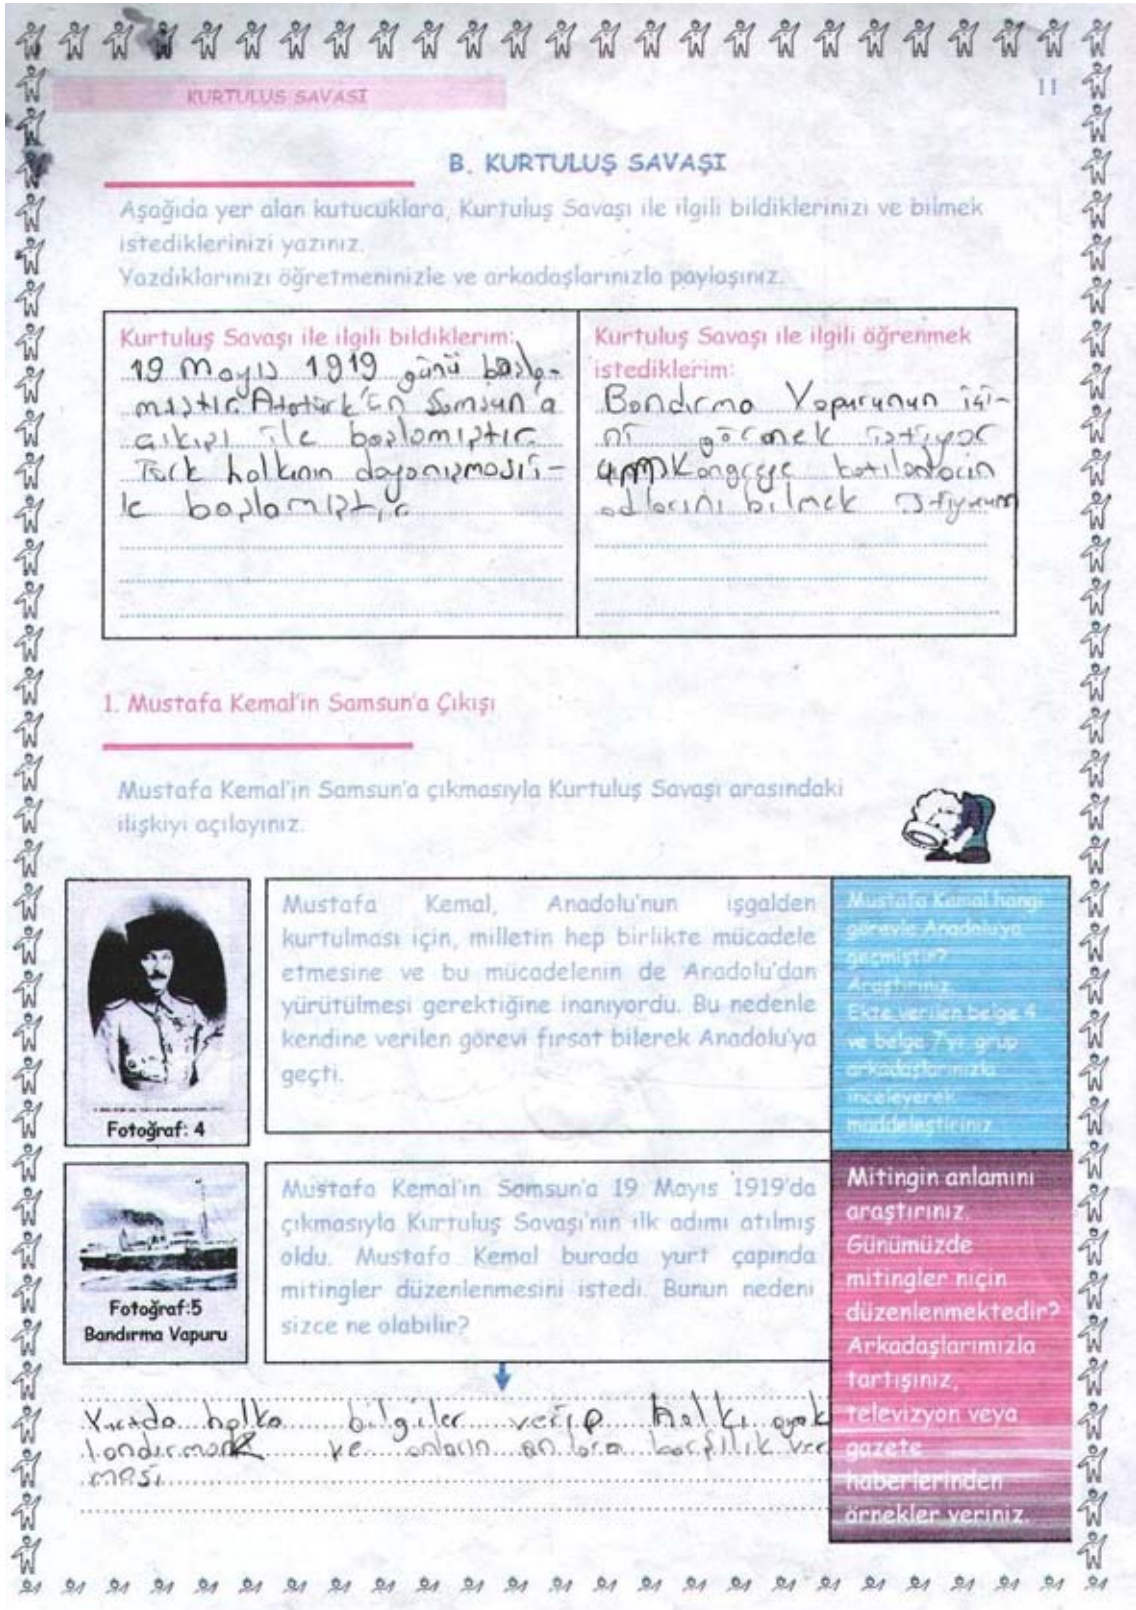 KURTULUS SAVASI
11
B. KURTULUŞ SAVAŞI
Aşağıda yer alan kutucuklara, Kurtuluş Savaşı ile ilgili bildiklerinizi ve bilmek
istediklerinizi yazınız.
Yazdıklarınızı öğretmeninizle ve arkadaşlarınızla paylaşınız.
Kurtuluş Savaşı ile ilgili bildiklerim:
19 Mayıs 1919 günü başla-
mıştır. Atatürk'ün Samsun'a
çıkışı ile başlamıştır.
Türk halkının dayanışması i-
le başlamıştır.
Kurtuluş Savaşı ile ilgili öğrenmek
istediklerim:
Bandırma Vapurunun içi-
ni görmek istiyor
um Kongreye katılanların
adlarını bilmek istiyorum
1. Mustafa Kemal'in Samsun'a Çıkışı
Mustafa Kemal'in Samsun'a çıkmasıyla Kurtuluş Savaşı arasındaki
ilişkiyi açılayınız.
Fotoğraf: 4
Mustafa Kemal, Anadolu'nun işgalden
kurtulması için, milletin hep birlikte mücadele
etmesine ve bu mücadelenin de Anadolu'dan
yürütülmesi gerektiğine inanıyordu. Bu nedenle
kendine verilen görevi fırsat bilerek Anadolu'ya
geçti.
Mustafa Kemal hangi
görevle Anadolu'ya
geçmiştir?
Araştırınız.
Ekte verilen belge 4
ve belge 7'yi grup
arkadaşlarınızla
inceleyerek
maddeleştiriniz
Fotoğraf:5
Bandırma Vapuru
Mustafa Kemal'in Samsun'a 19 Mayıs 1919'da
çıkmasıyla Kurtuluş Savaşı'nın ilk adımı atılmış
oldu. Mustafa Kemal burada yurt çapında
mitingler düzenlenmesini istedi. Bunun nedeni
sizce ne olabilir?
Mitingin anlamını
araştırınız.
Günümüzde
mitingler niçin
düzenlenmektedir?
Arkadaşlarımızla
tartışınız,
televizyon veya
gazete
haberlerinden
örnekler veriniz.
Yurtda halka bilgiler verip halkı ayak
landırmak ve onların onlara karşılık ver
mesi